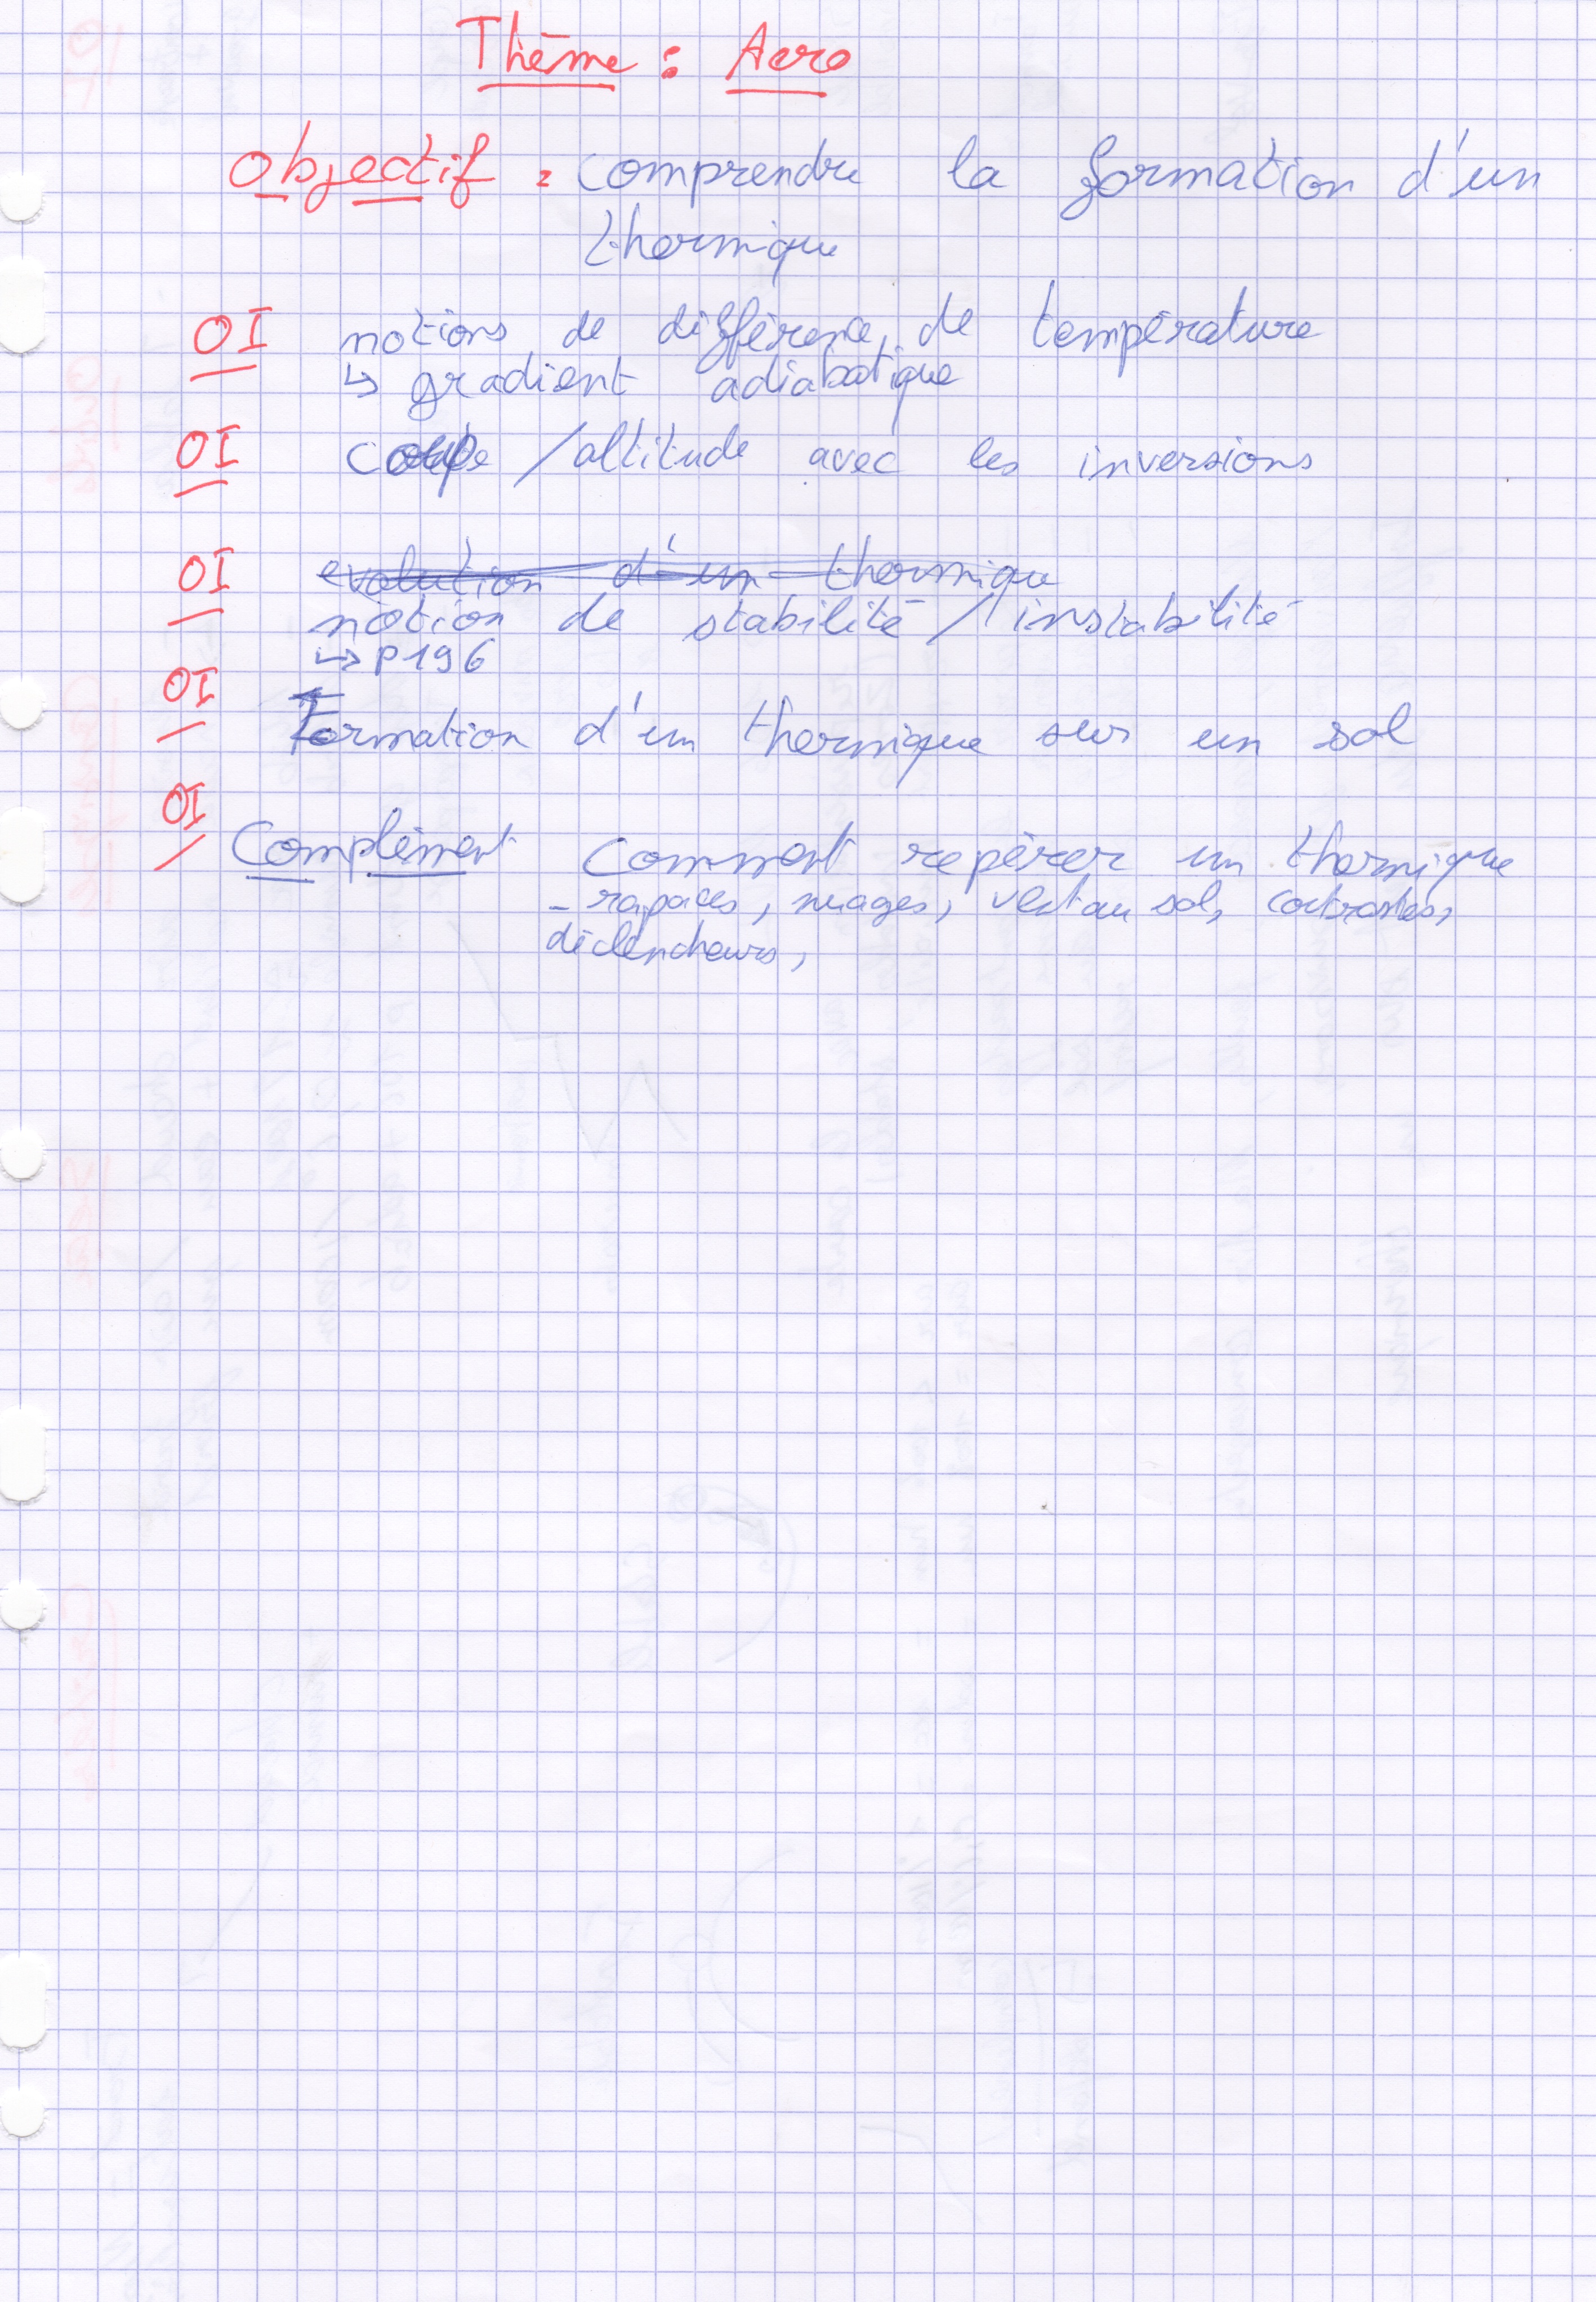 Thème : Aero
Objectif : comprendre la formation d'un
thermique
OI notions de différence de température
↳ gradient adiabatique
OI coupe /altitude avec les inversions
OI evolution d'un thermique
notion de stabilité / instabilité
↳ P196
OI Formation d'un thermique sur un sol
OI Complément Comment repérer un thermique
- rapaces, nuages, vent au sol, contrastes,
déclencheurs,